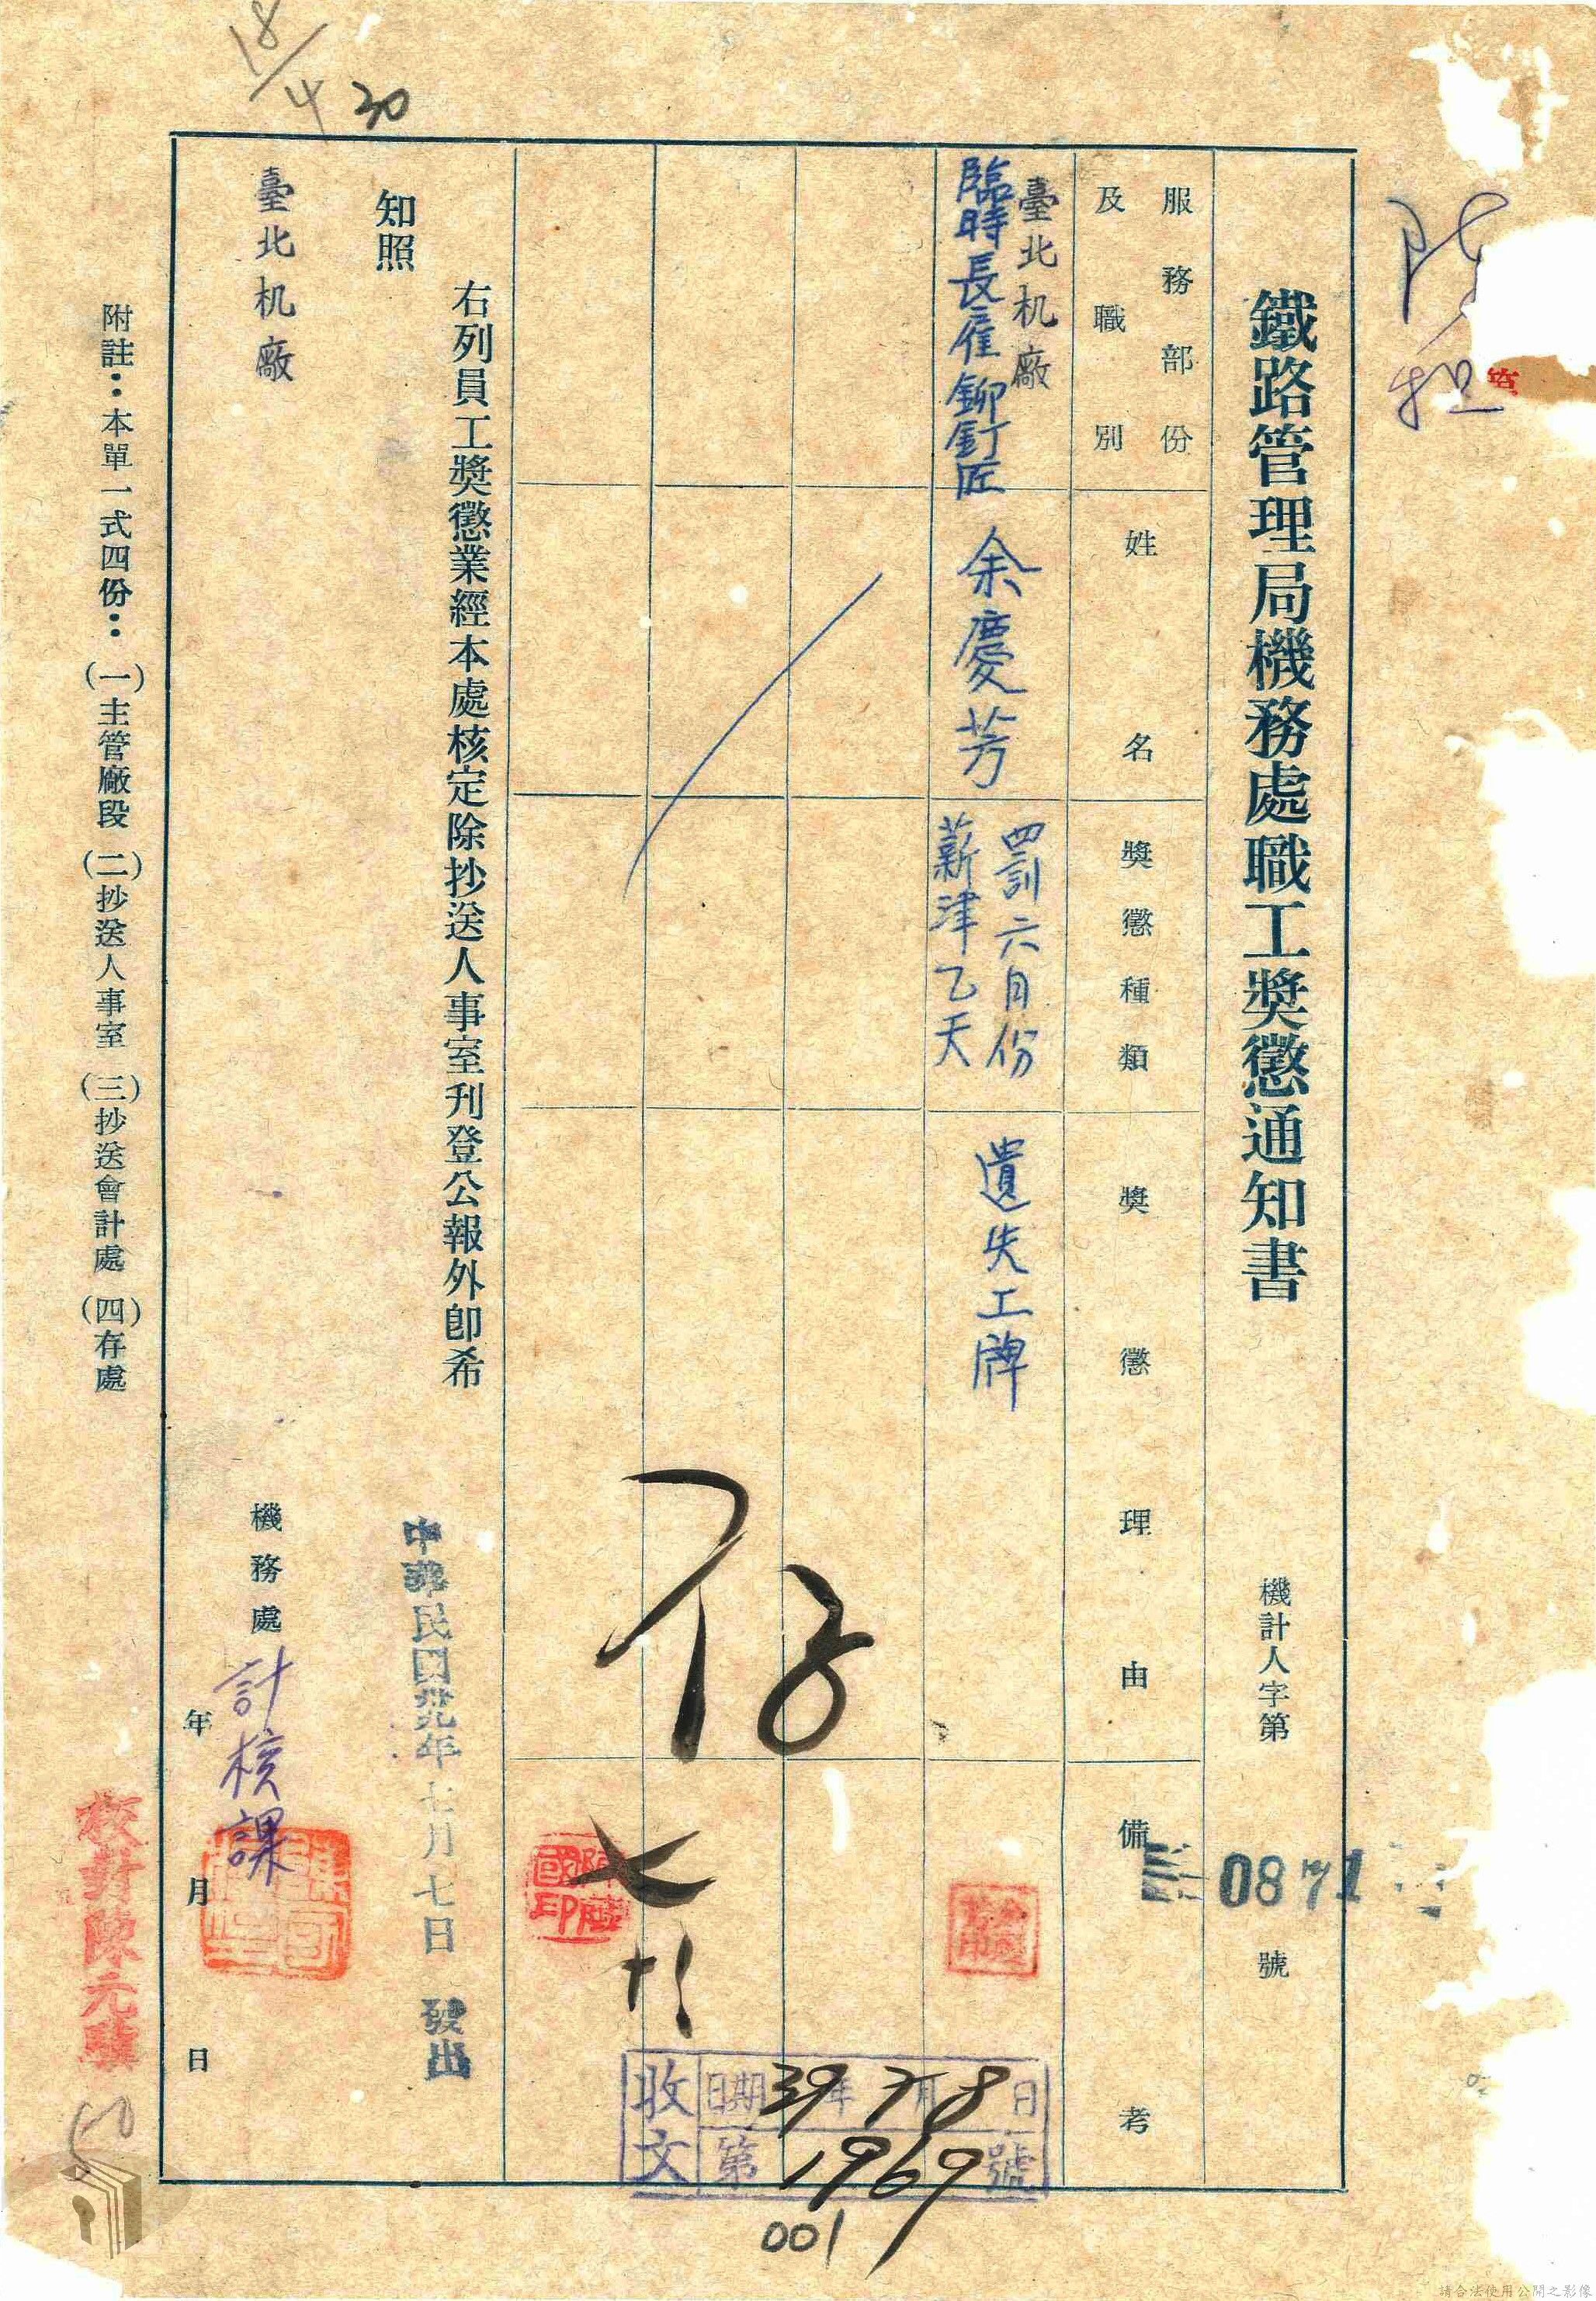 鐵路管理局機務處職工獎懲通知書
機計人字第
0871
號
服務部份
及職別
姓名
獎懲種類
獎懲理由
備考
臺北机廠
臨時長雇鉚釘匠
余慶芳
罰六月份
薪津乙天
遺失工牌
存
七
右列員工獎懲業經本處核定除抄送人事室刊登公報外卽希
知照
臺北机廠
中華民國卅九年七月七日發出
機務處
計核課
年月日
附註：本單一式四份：(一)主管廠段(二)抄送人事室(三)抄送會計處(四)存處
校對陳元
收文
日期39年7月8日
第1969號
001
18/4
30
50
請合法使用公開之影像